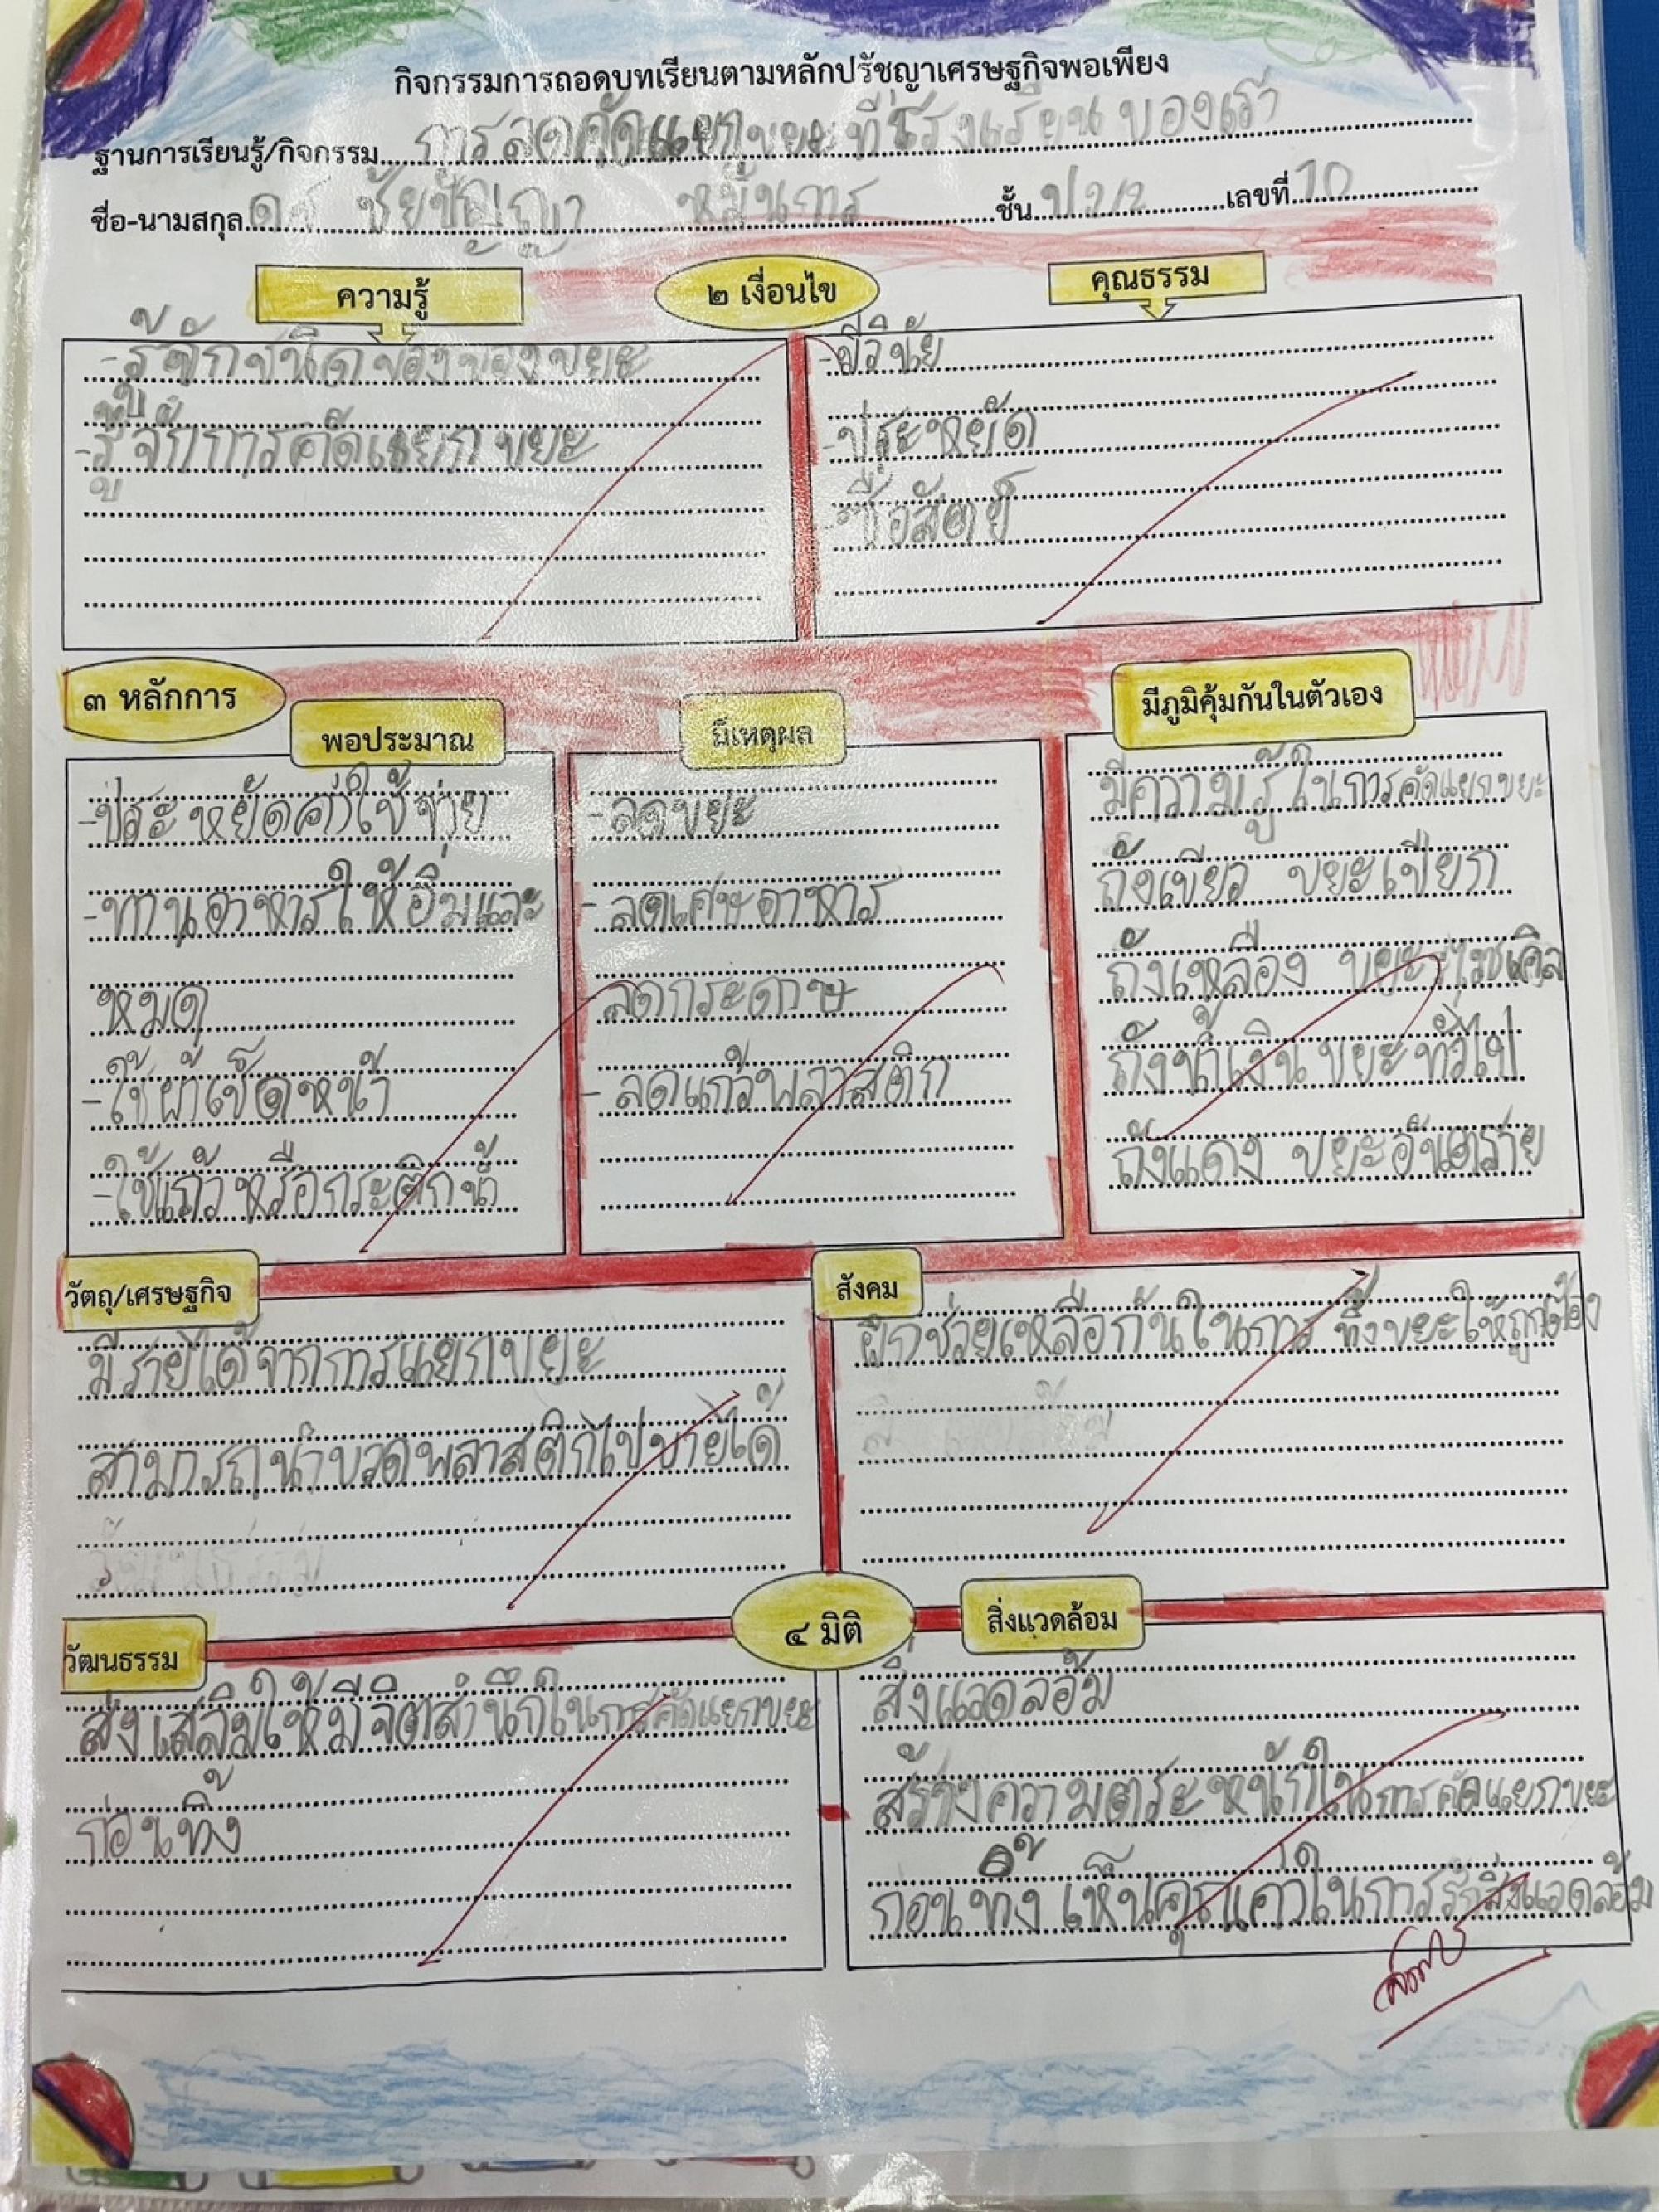 กิจกรรมการถอดบทเรียนตามหลักปรัชญาเศรษฐกิจพอเพียง
ฐานการเรียนรู้/กิจกรรม การลดคัดแยกขยะที่โรงเรียนของเรา
ชื่อ-นามสกุล ด.ช ชัยปัญญา หมื่นการ ชั้น ป2/2 เลขที่ 10
ความรู้ ๒ เงื่อนไข คุณธรรม
-รู้จักชนิดของของขยะ
-รู้จักการคัดแยกขยะ
-มีวินัย
-ประหยัด
-ซื่อสัตย์
๓ หลักการ
พอประมาณ มีเหตุผล มีภูมิคุ้มกันในตัวเอง
-ประหยัดค่าใช้จ่าย
-ทานอาหารให้อิ่มและ
หมด
-ใช้ผ้าเช็ดหน้า
-ใช้แก้วหรือกระติกน้ำ
-ลดขยะ
-ลดเศษอาหาร
-ลดกระดาษ
-ลดแก้วพลาสติก
มีความรู้ในการคัดแยกขยะ
ถังเขียว ขยะเปียก
ถังเหลือง ขยะรีไซเคิล
ถังน้ำเงิน ขยะทั่วไป
ถังแดง ขยะอันตราย
วัตถุ/เศรษฐกิจ
มีรายได้จากการแยกขยะ
สามารถนำขวดพลาสติกไปขายได้
สังคม
ฝึกช่วยเหลือกันในการ ทิ้งขยะให้ถูกต้อง
๔ มิติ
วัฒนธรรม
ส่งเสริมให้มีจิตสำนึกในการคัดแยกขยะ
ก่อนทิ้ง
สิ่งแวดล้อม
สิ่งแวดล้อม
สร้างความตระหนักในการคัดแยกขยะ
ก่อนทิ้ง เห็นคุณค่าในการรักสิ่งแวดล้อม